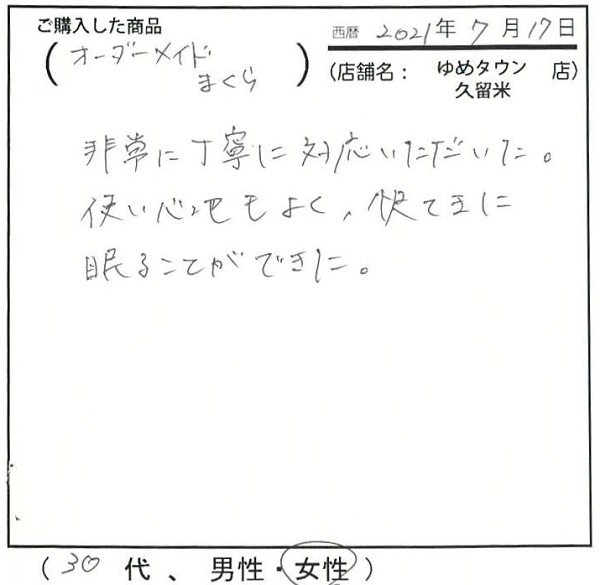 ご購入した商品
西暦 2021年 7月 17日
(オーダーメイド
まくら)
(店舗名: ゆめタウン 店)
久留米
非常に丁寧に対応いただいた。
使い心地もよく、快てきに
眠ることができた。
(30代、男性・女性)